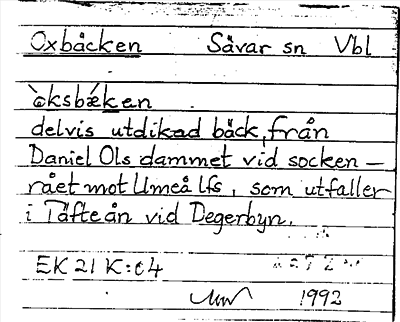 Oxbäcken Sävar sn Vbl
òksbǽken
delvis utdikad bäck, från
Daniel Ols dammet vid socken-
rået mot Umeå lfs, som utfaller
i Täfteån vid Degerbyn.
EK 21 K:c4
1992